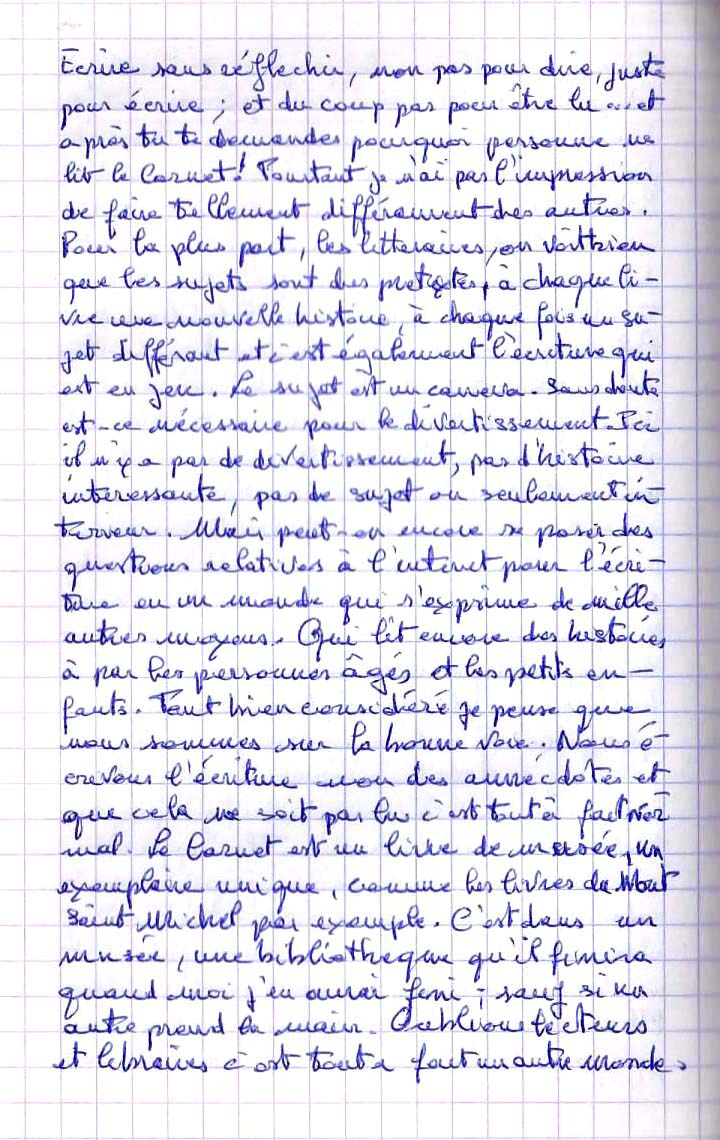 Ecrire sans réflechir, non pas pour dire, juste
pour écrire ; et du coup pas pour être lu ... et
après tu te demandes pourquoi personne ne
lit le Carnet ! Pourtant je n'ai pas l'impression
de faire tellement différemment des autres.
Pour la plus part, les litteraires, on voit bien
que les sujets sont des pretextes, à chaque li-
vre une nouvelle histoire, à chaque fois un su-
jet différant et c'est également l'écriture qui
est en jeu. Le sujet est un caneva. Sans doute
est-ce nécessaire pour le divertissement. Ici
il n'y a pas de divertissement, pas d'histoire
interessante, pas de sujet ou seulement in-
terieur. Mais peut-on encore se poser des
questions relatives à l'interet pour l'écri-
ture en un monde qui s'exprime de mille
autres moyens. Qui lit encore des histoires
à par les personnes âgés et les petits en-
fants. Tout bien consideré je pense que
nous sommes sur la bonne voie. Nous é-
crivons l'écriture non des annecdotes et
que cela ne soit pas lu c'est tout à fait nor
mal. Le Carnet est un livre de musée, un
exemplaire unique, comme les livres du Mont
Saint Michel par exemple. C'est dans un
musée, une bibliotheque qu'il finira
quand moi j'en aurai fini ; sauf si un
autre prend la main. Oublions lecteurs
et libraires c'est tout a fait un autre monde.